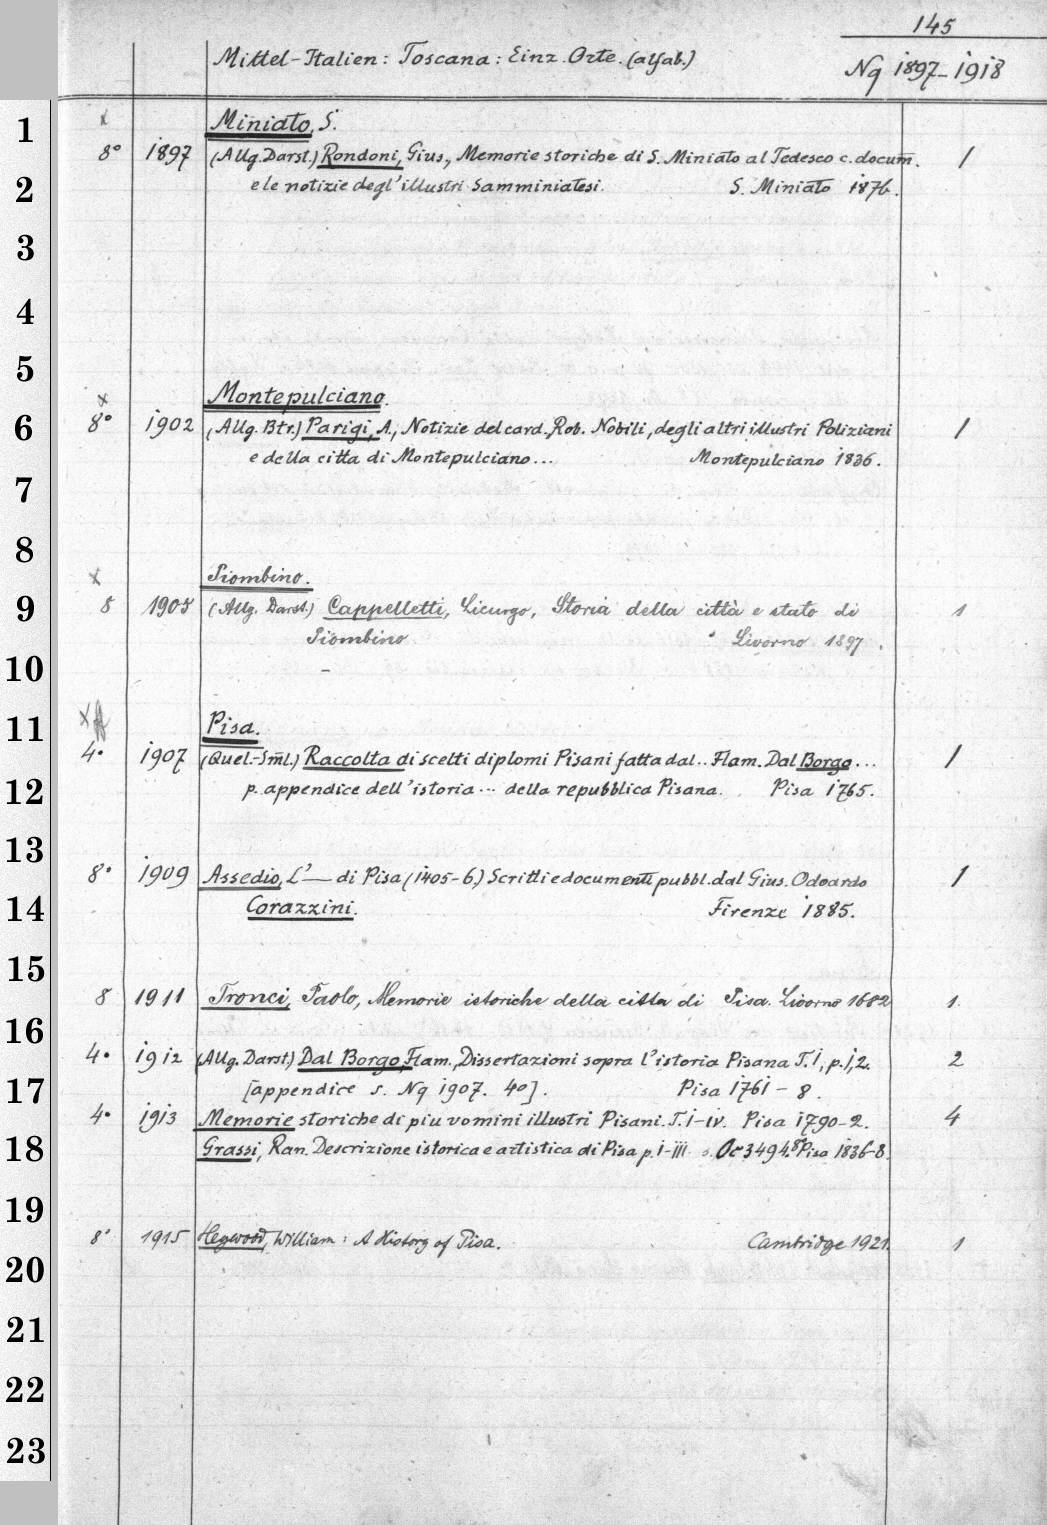 145
Mittel-Italien: Toscana: Einz. Orte. (alfab.)
Nq 1897-1918
1
x
Miniato, S.
8° 1897 (Allg. Darst.) Rondoni, Gius., Memorie storiche di S. Miniato al Tedesco c. docum. 1
2
e le notizie degl'illustri Samminiatesi. S. Miniato 1876.
3
4
5
x
Montepulciano.
6
8° 1902 (Allg. Btr.) Parigi, A., Notizie del card. Rob. Nobili, degli altri illustri Poliziani 1
e della citta di Montepulciano... Montepulciano 1836.
7
8
x
Piombino.
9
8 1905 (Allg. Darst.) Cappelletti, Licurgo, Storia della città e stato di 1
Piombino Livorno 1897.
10
11
x
Pisa.
4° 1907 (Quel.-Sml.) Raccolta di scelti diplomi Pisani fatta dal.. Flam. Dal Borgo... 1
12
p. appendice dell'istoria... della repubblica Pisana. Pisa 1765.
13
8° 1909 Assedio, L'— di Pisa (1405-6.) Scritti e documenti pubbl. dal Gius. Odoardo 1
14
Corazzini. Firenze 1885.
15
8 1911 Tronci, Paolo, Memorie istoriche della citta di Pisa. Livorno 1682 1.
16
4° 1912 (Allg. Darst.) Dal Borgo, Flam., Dissertazioni sopra l'istoria Pisana T. I, p. 1, 2. 2
17
[appendice s. Nq 1907. 4°]. Pisa 1761-8.
4° 1913 Memorie storiche di piu vomini illustri Pisani. T. I-IV. Pisa 1790-2. 4
18
Grassi, Ran. Descrizione istorica e artistica di Pisa p. I-III s. Oc 3494. 8° Pisa 1836-8.
19
8° 1915 Heywood, William: A History of Pisa. Cambridge 1921. 1
20
21
22
23